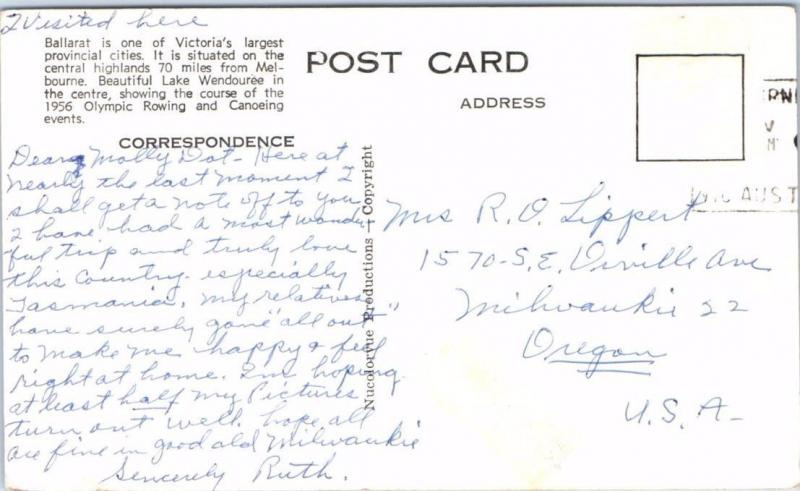 I Visited here
Ballarat is one of Victoria's largest
provincial cities. It is situated on the
central highlands 70 miles from Mel-
bourne. Beautiful Lake Wendouree in
the centre, showing the course of the
1956 Olympic Rowing and Canoeing
events.
POST CARD
ADDRESS
CORRESPONDENCE
Dear Molly Dot - Here at
nearly the last moment I
shall get a note off to you
I have had a most wonder-
ful trip and truly love
this Country - especially
Tasmania. My relatives
have surely gone "all out"
to make me happy & feel
right at home. I'm hoping
at least half my Pictures
turn out well. hope all
are fine in good old Milwaukie
Sincerely Ruth.
Nucolorvue Productions — Copyright
Mrs R. O. Lippert
1570 - S.E. Ave
Milwaukie 22
Oregon
U.S.A -
AUST